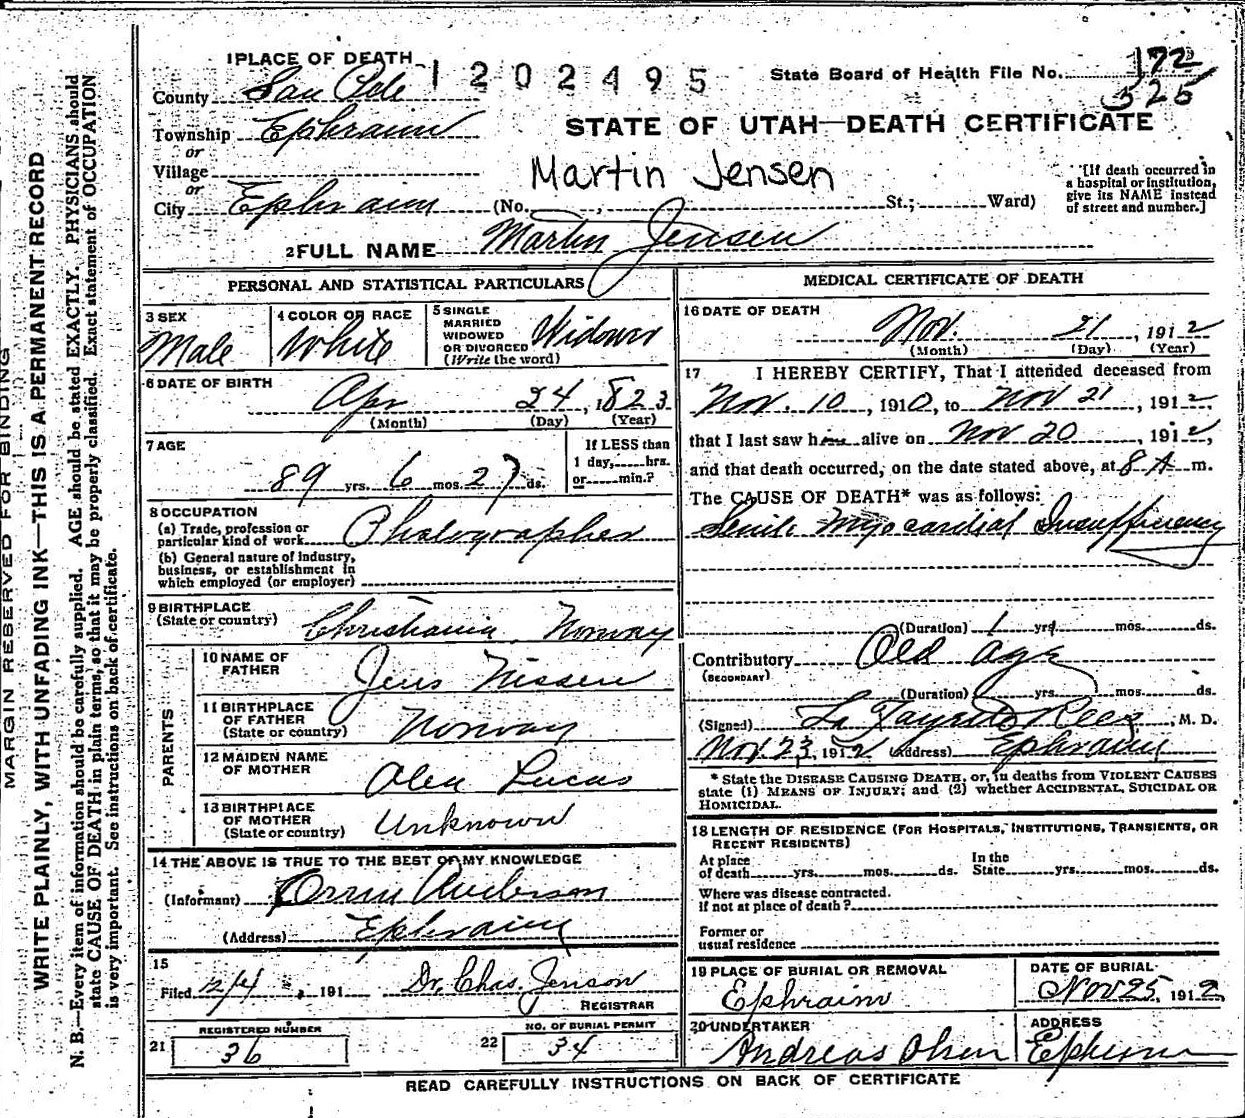 1 PLACE OF DEATH
1202495
State Board of Health File No. 172
525
County San Pete
Township Ephraim
or
Village
or
City Ephraim (No. , St.; Ward)
STATE OF UTAH—DEATH CERTIFICATE
Martin Jensen
[If death occurred in
a hospital or institution,
give its NAME instead
of street and number.]
2 FULL NAME Martin Jensen
PERSONAL AND STATISTICAL PARTICULARS
3 SEX
Male
4 COLOR OR RACE
White
5 SINGLE
MARRIED
WIDOWED
OR DIVORCED
(Write the word)
Widower
6 DATE OF BIRTH
Apr 24, 1823
(Month) (Day) (Year)
7 AGE
89 yrs. 6 mos. 27 ds.
If LESS than
1 day, hrs.
or min.?
8 OCCUPATION
(a) Trade, profession or
particular kind of work Photographer
(b) General nature of industry,
business, or establishment in
which employed (or employer)
9 BIRTHPLACE
(State or country) Christiania, Norway
PARENTS
10 NAME OF
FATHER Jens Nissen
11 BIRTHPLACE
OF FATHER
(State or country) Norway
12 MAIDEN NAME
OF MOTHER Olea Lucas
13 BIRTHPLACE
OF MOTHER
(State or country) Unknown
14 THE ABOVE IS TRUE TO THE BEST OF MY KNOWLEDGE
(Informant) Anderson
(Address) Ephraim
15
Filed 12/4, 191 Dr. Chas. Jenson
REGISTRAR
21 REGISTERED NUMBER
36
22 NO. OF BURIAL PERMIT
34
MEDICAL CERTIFICATE OF DEATH
16 DATE OF DEATH
Nov. 21, 1912
(Month) (Day) (Year)
17 I HEREBY CERTIFY, That I attended deceased from
Nov. 10, 1910, to Nov 21, 1912,
that I last saw him alive on Nov 20, 1912,
and that death occurred, on the date stated above, at 8 A m.
The CAUSE OF DEATH* was as follows:
Senile Myocardial Insufficiency
(Duration) 1 yrs. mos. ds.
Contributory Old age
(SECONDARY)
(Duration) yrs. mos. ds.
(Signed) La Fayette Rees, M. D.
Nov 23, 1912 (Address) Ephraim
* State the DISEASE CAUSING DEATH, or, in deaths from VIOLENT CAUSES
state (1) MEANS OF INJURY; and (2) whether ACCIDENTAL, SUICIDAL OR
HOMICIDAL.
18 LENGTH OF RESIDENCE (FOR HOSPITALS, INSTITUTIONS, TRANSIENTS, OR
RECENT RESIDENTS)
At place
of death yrs. mos. ds.
In the
State yrs. mos. ds.
Where was disease contracted.
If not at place of death?
Former or
usual residence
19 PLACE OF BURIAL OR REMOVAL
Ephraim
DATE OF BURIAL
Nov 25, 1912
20 UNDERTAKER
Andreas Olsen
ADDRESS
Ephraim
READ CAREFULLY INSTRUCTIONS ON BACK OF CERTIFICATE
MARGIN RESERVED FOR BINDING
WRITE PLAINLY, WITH UNFADING INK—THIS IS A PERMANENT RECORD
N. B.—Every item of information should be carefully supplied. AGE should be stated EXACTLY. PHYSICIANS should
state CAUSE OF DEATH in plain terms, so that it may be properly classified. Exact statement of OCCUPATION
is very important. See instructions on back of certificate.